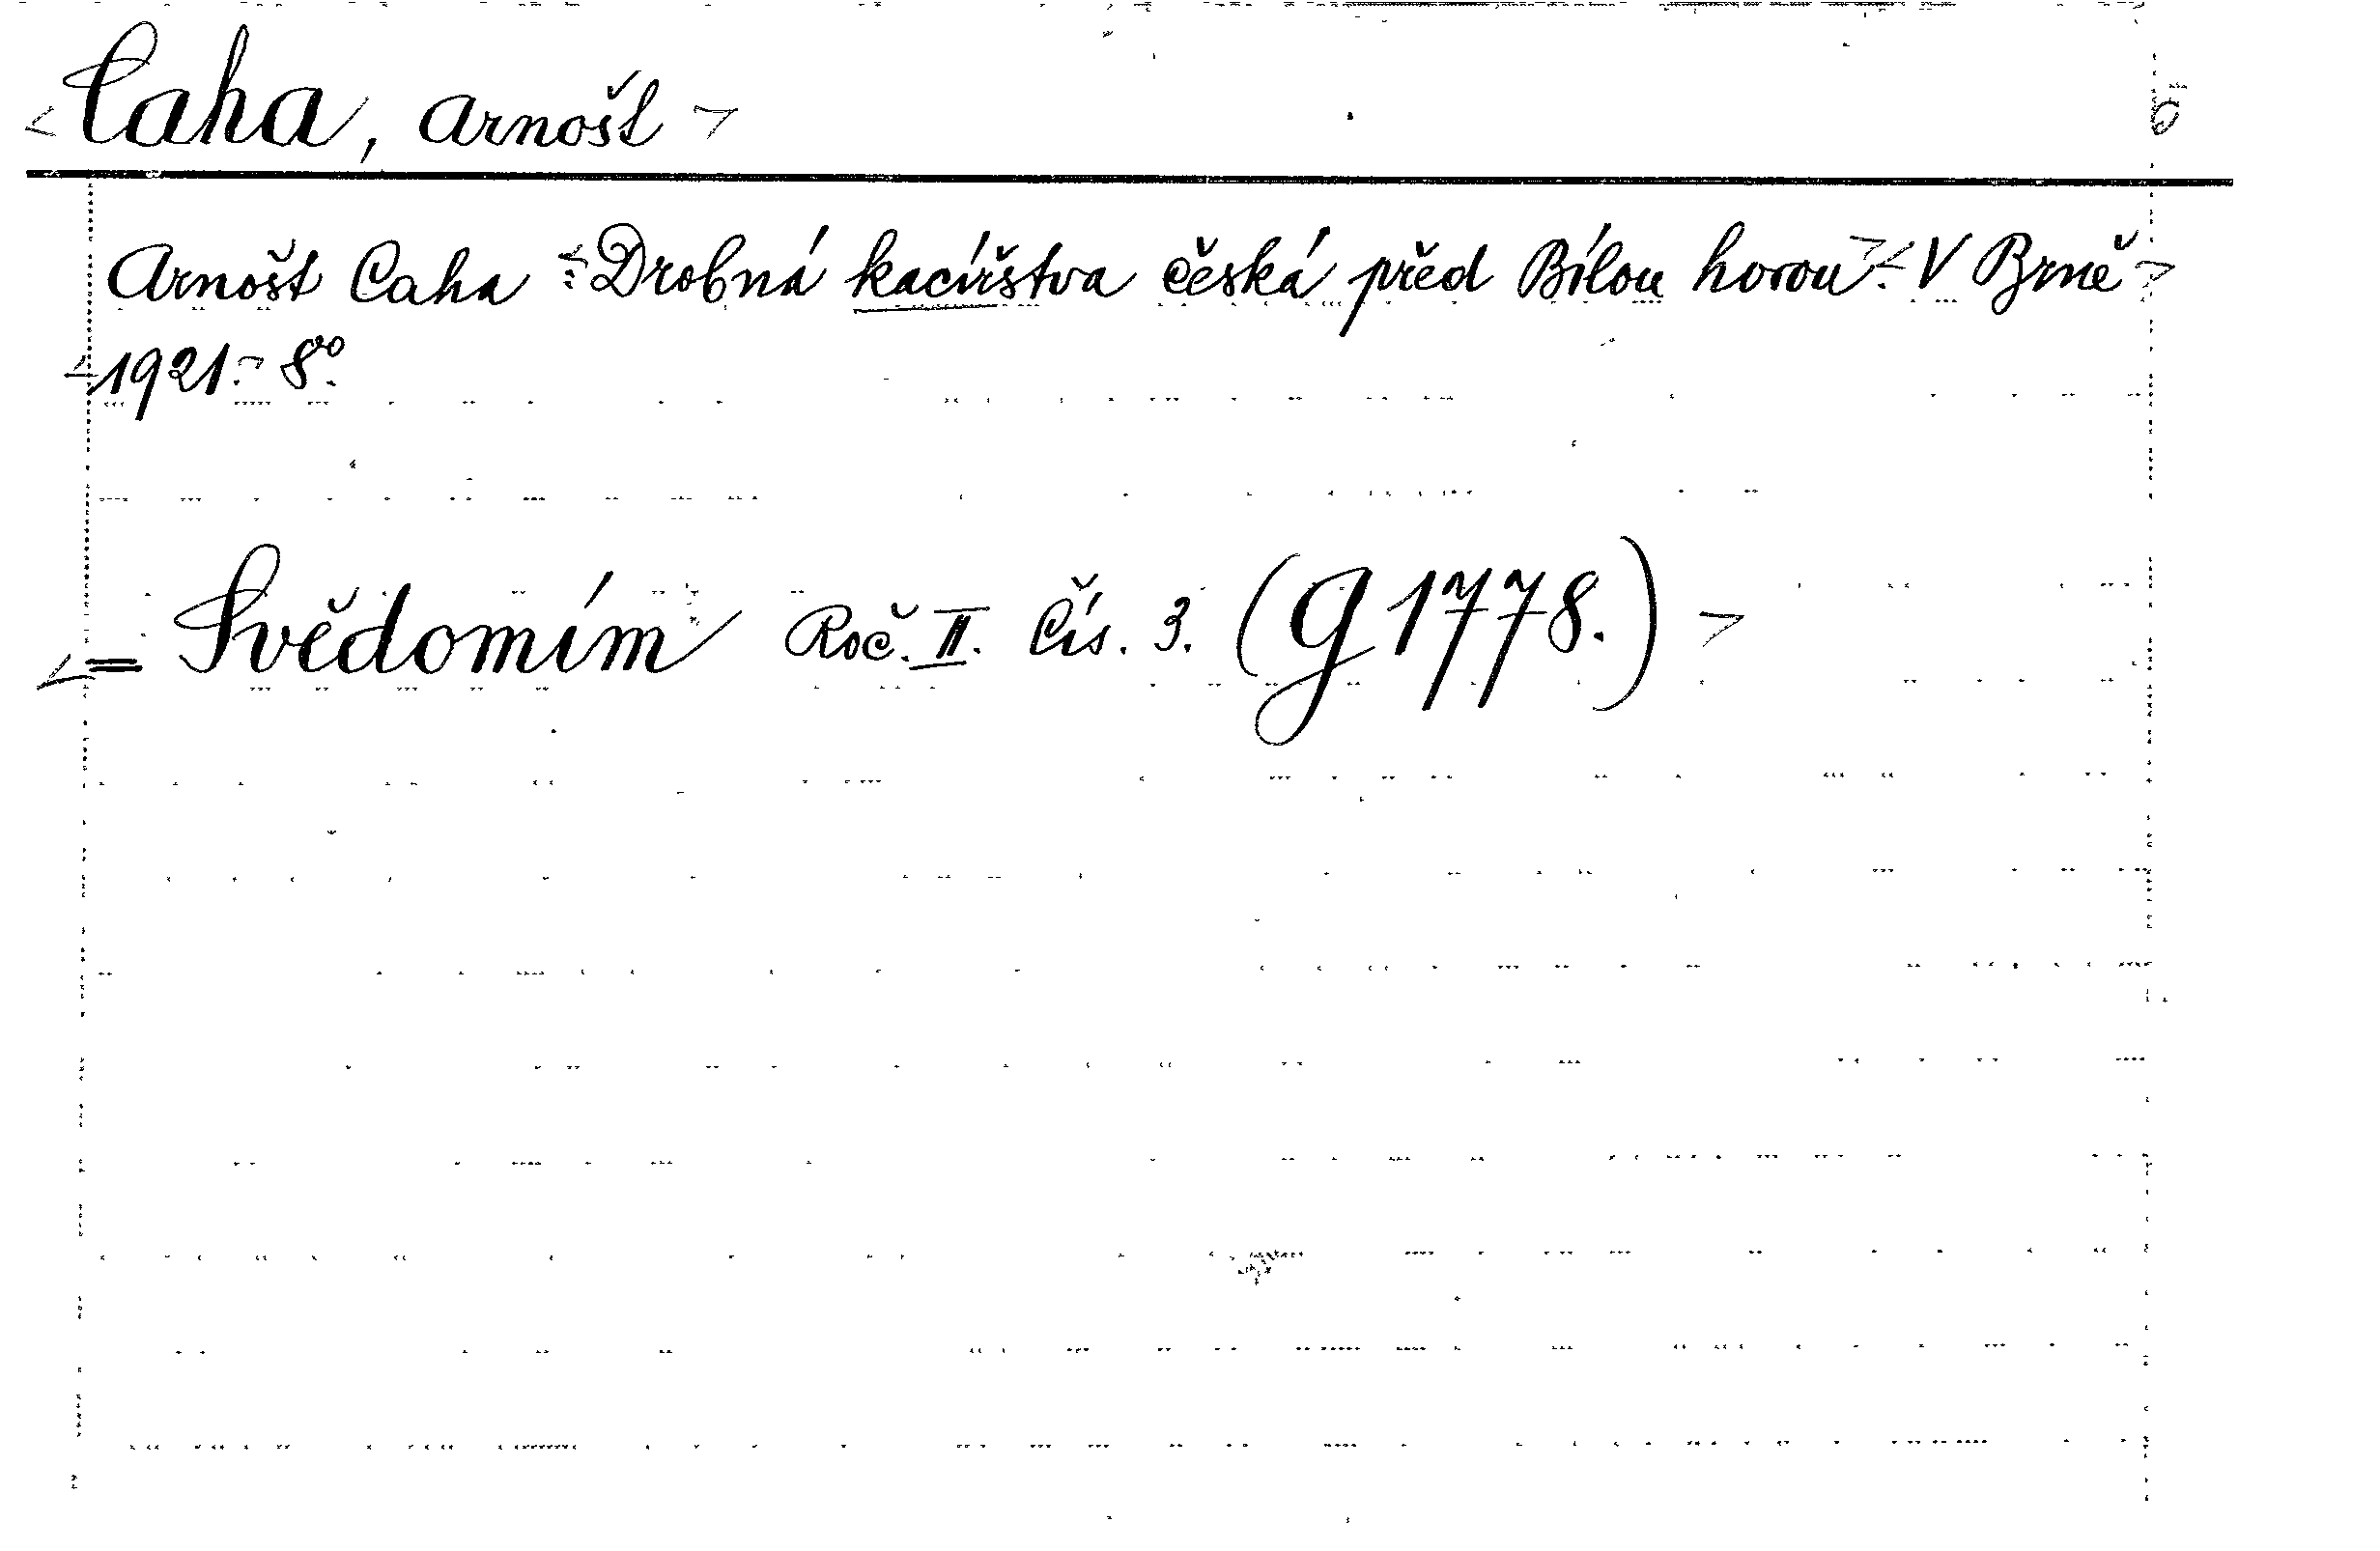 <Caha, Arnošt>
Arnošt Caha <: Drobná kacířstva česká před Bílou horou>.< V Brně>
<1921.> 8º.
<= Svědomím Roč. II. Čís. 3. (G 1778.)>